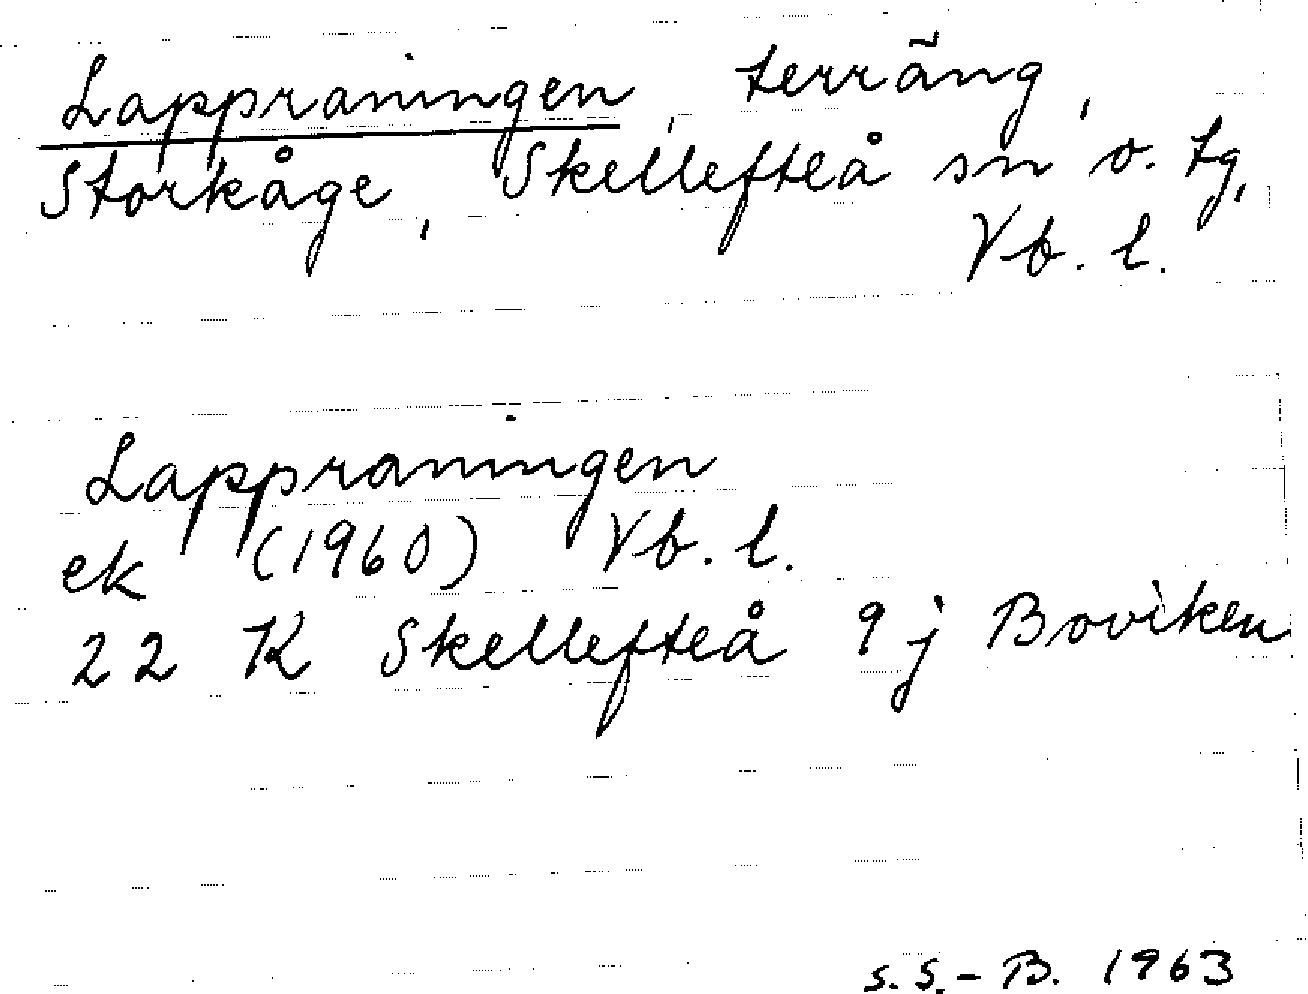 Lappraningen, terräng,
Storkåge, Skellefteå sn o. tg,
Vb. l.
Lappraningen
ek (1960) Vb. l.
22 K Skellefteå 9 j Boviken
S.S.-B. 1963